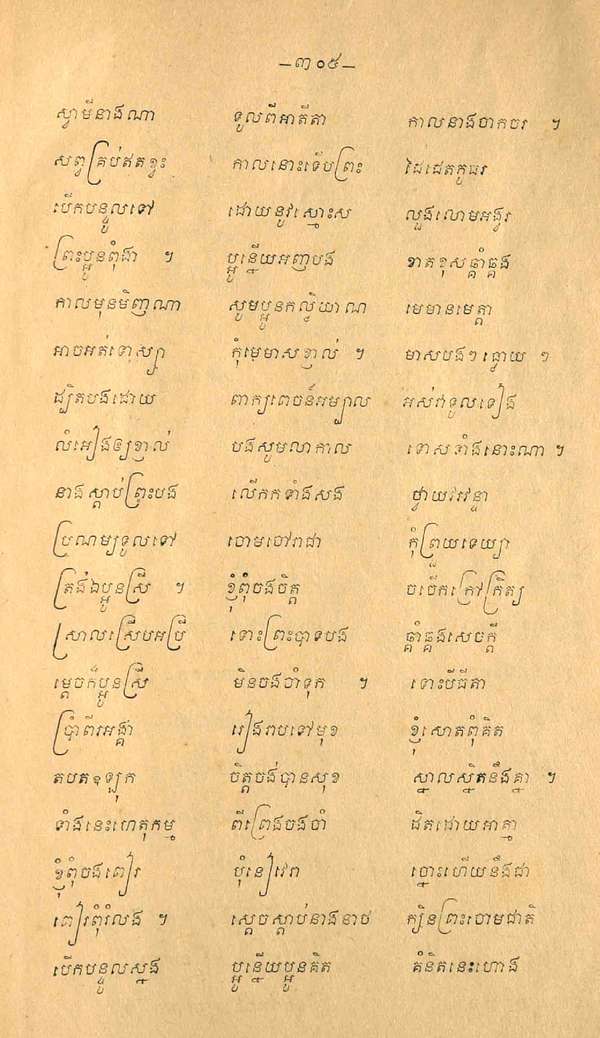 —៣០៥—
ស្វាមីនាងណា ទូលពីអាតីតា កាលនាងចាកចរ ។
សព្វគ្រប់ឥតខ្វះ កាលនោះទើបព្រះ ដៃដេតកូធរ
បើកបន្ទូលទៅ ដោយនូវស្មោះស លួងលោមអង្វរ
ព្រះប្អូនពុំងា ។ ប្អូន្នើយអញបង ខាតខុសឆ្គាំឆ្គង
កាលមុនមិញណា សូមប្អូនកល្យិយាណ មេមានមេត្តា
អាចអត់ទោស្យា កុំមេមាសខ្ញាល់ ។ មាសបងៗធ្វោយ ៗ
ដ្បិតបងដោយ ពាក្យពេចន៍អម្បាល អស់វាទូលទៀង
លំអៀងឲ្យខ្ញាល់ បងសូមលាកាល ទោសទាំងនោះណា ។
នាងស្ដាប់ព្រះបង លើកកទាំងសង ថ្វាយវរវន្ទា
ប្រណម្យទូលទៅ ចោមចៅរាជា កុំព្រួយទេយ្យា
ត្រង់ឯប្អូនស្រី ។ ខ្ញុំពុំចងចិត្ត ចច្ចើកក្រៅក្រិត្យ
ស្រាលស្រើបអប្រី ទោះព្រះបាទបង ឆ្គាំឆ្គងសេចក្ដី
ម្ដេចក៏ប្អូនស្រី មិនចងចាំទុក ។ ទោះបីធីតា
ប្រាំពីរអង្គា រៀងរាបទៅមុខ ខ្ញុំសោតពុំគិត
តបតឧឡ្ឡុក ចិត្តចង់បានសុខ ស្នាលស្និតនឹងគ្នា ។
ទាំងនេះហេតុកម្ម ពីព្រេងចងចាំ ដិតដោយអាត្មា
ខ្ញុំពុំចងពៀរ បុំនៀវេរា ច្នោះហើយនឹងជា
ពៀរពុំរំលង ។ ស្ដេចស្ដាប់នាងនាថ ក្សិនព្រះចោមជាតិ
បើកបន្ទូលស្នង ប្អូន្នើយប្អូនគិត គំនិតនេះហោង